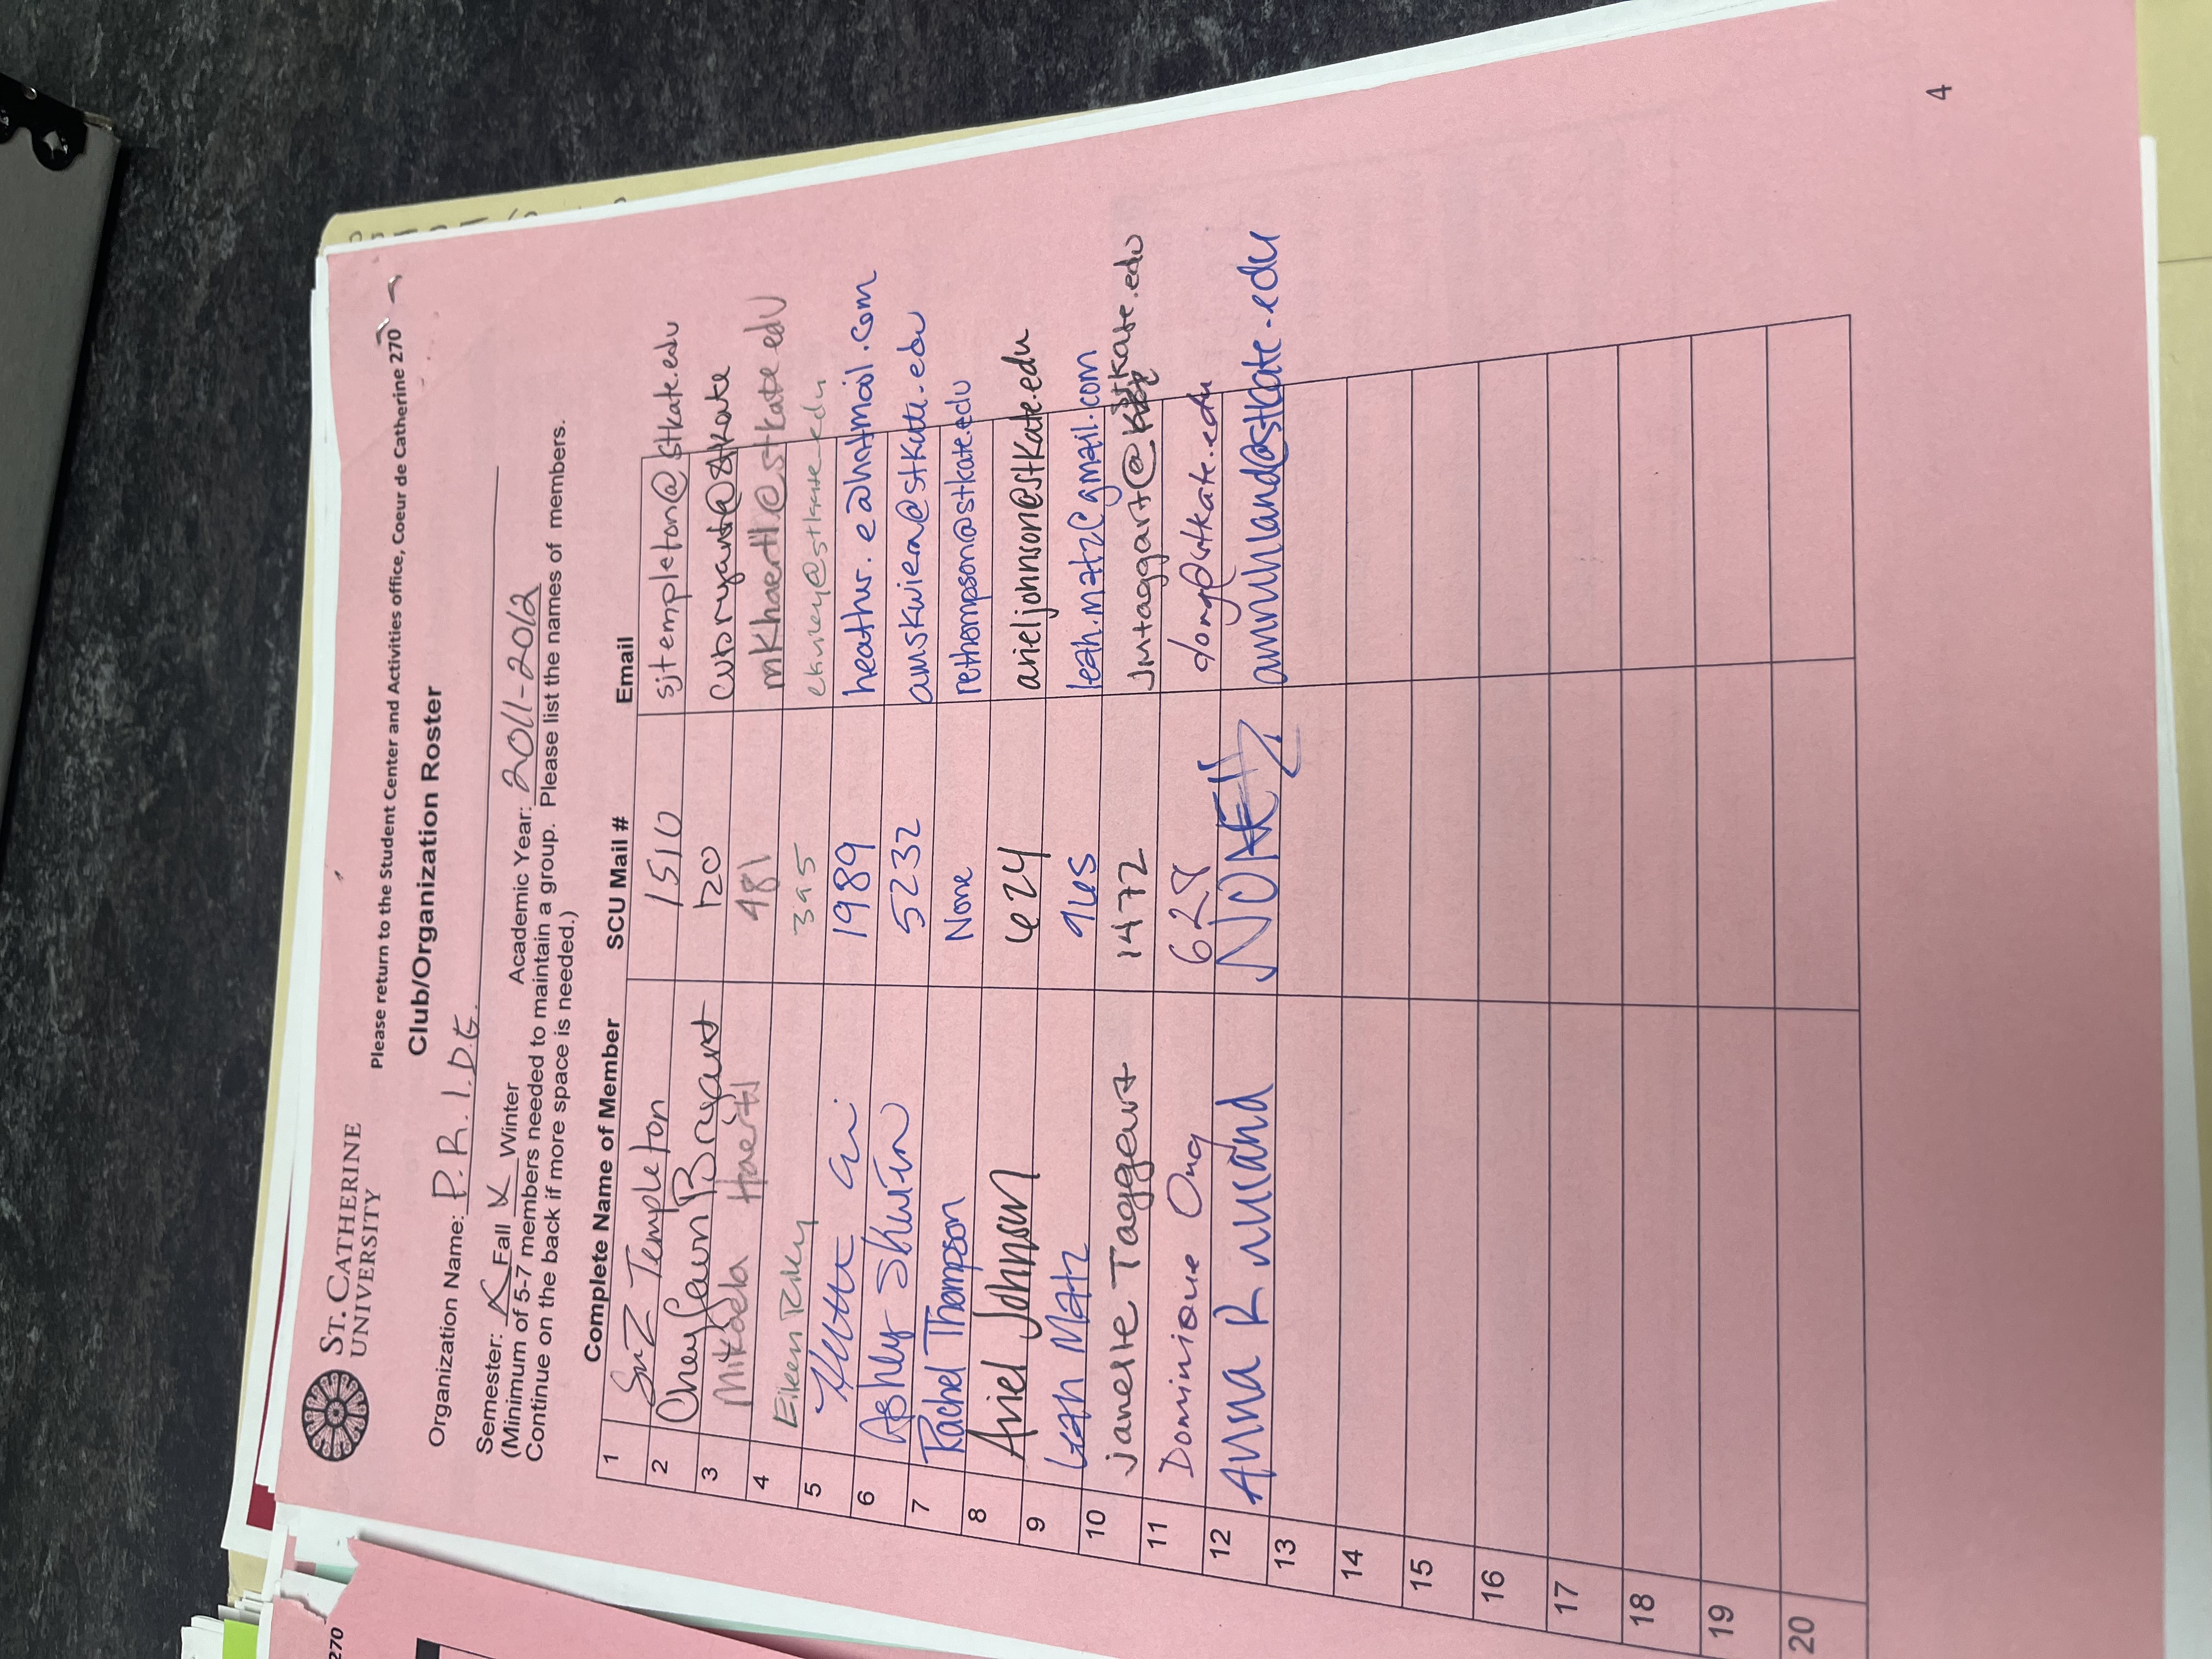 270
ST. CATHERINE
UNIVERSITY
Please return to the Student Center and Activities office, Coeur de Catherine 270
Club/Organization Roster
Organization Name: P.R.I.D.E.
Semester: X Fall X Winter Academic Year: 2011-2012
(Minimum of 5-7 members needed to maintain a group. Please list the names of members.
Continue on the back if more space is needed.)
Complete Name of Member SCU Mail # Email
1 SuZ Templeton 1510 sjtempleton@stkate.edu
2 Bryant 120 cvbryant@stkate
3 Mikaela Haertl 481 mkhaertl@stkate edu
4 Eileen Riley 395 ekriley@stkate.edu
5 1989 heather.e@hotmail.com
6 Ashley 5232 amskwiera@stkate.edu
7 Rachel Thompson None rethompson@stkate.edu
8 Ariel Johnson 624 arieljohnson@stkate.edu
9 Leah Matz 965 leah.matz@gmail.com
10 Janelle Taggart 1472 jmtaggart@stkate.edu
11 Dominique Ong 628 dong@stkate.edu
12 Anna R NONE!! @stkate.edu
13
14
15
16
17
18
19
20
4